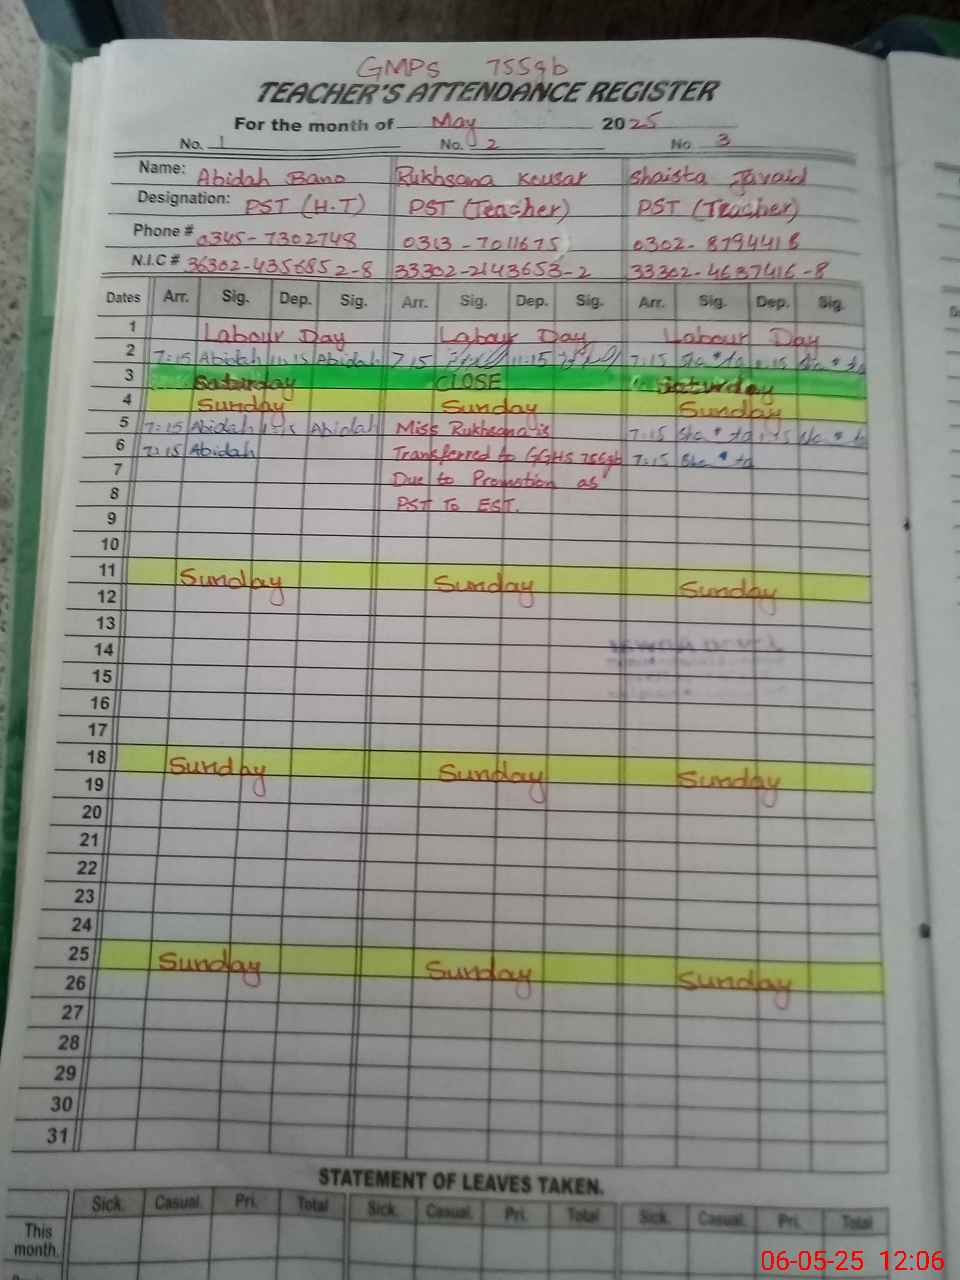 GMPS 755gb
TEACHER'S ATTENDANCE REGISTER
For the month of May 2025
No. 1 No. 2 No 3
Name: Abidah Bano Rukhsana Kousar Shaista Javaid
Designation: PST (H.T) PST (Teacher) PST (Teacher)
Phone # 0345-7302748 0313-7011675 0302-8794418
N.I.C # 36302-4356852-8 33302-2143653-2 33302-4637416-8
Dates Arr. Sig. Dep. Sig. Arr. Sig. Dep. Sig. Arr. Sig. Dep. Sig.
1 Labour Day Labour Day Labour Day
2 7:15 Abidah 11:15 Abidah 7:15 11:15 7:15
3 Saturday CLOSE Saturday
4 Sunday Sunday Sunday
5 7:15 Abidah Abidah Miss Rukhsana is 7:15
6 7:15 Abidah Transferred to GGHS 755gb 7:15
7 Due to Promotion as
8 PST To EST.
9
10
11 Sunday Sunday Sunday
12
13
14
15
16
17
18 Sunday Sunday Sunday
19
20
21
22
23
24
25 Sunday Sunday Sunday
26
27
28
29
30
31
STATEMENT OF LEAVES TAKEN.
Sick. Casual. Pri. Total Sick. Casual. Pri. Total Sick. Casual. Pri. Total
This
month.
06-05-25 12:06